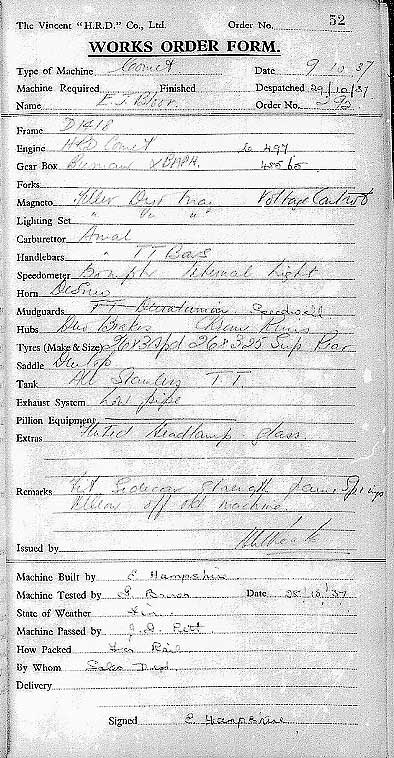 The Vincent "H.R.D." Co., Ltd. Order No. 52
WORKS ORDER FORM.
Type of Machine Comet Date 9.10.37
Machine Required Finished Despatched 29/10/37
Name E. J. Order No.
Frame D1418
Engine HRD Comet 497
Gear Box Burman
Forks
Magneto Miller Dyno Mag Voltage Control
Lighting Set " " "
Carburettor Amal
Handlebars " TT Bars
Speedometer Internal Light
Horn
Mudguards Duralumin Speedwell
Hubs Duo Brakes Rims
Tyres (Make & Size) 26 x 3.25 Rear
Saddle Dunlop
Tank All Stainless T.T.
Exhaust System Low pipe
Pillion Equipment
Extras Fluted Headlamp glass
Remarks Fit Sidecar Strength Springs
off old machine
Issued by
Machine Built by E Hampshire.
Machine Tested by Date 28/10/37
State of Weather
Machine Passed by
How Packed Per Rail
By Whom Sales Dept.
Delivery
Signed E. Hampshire